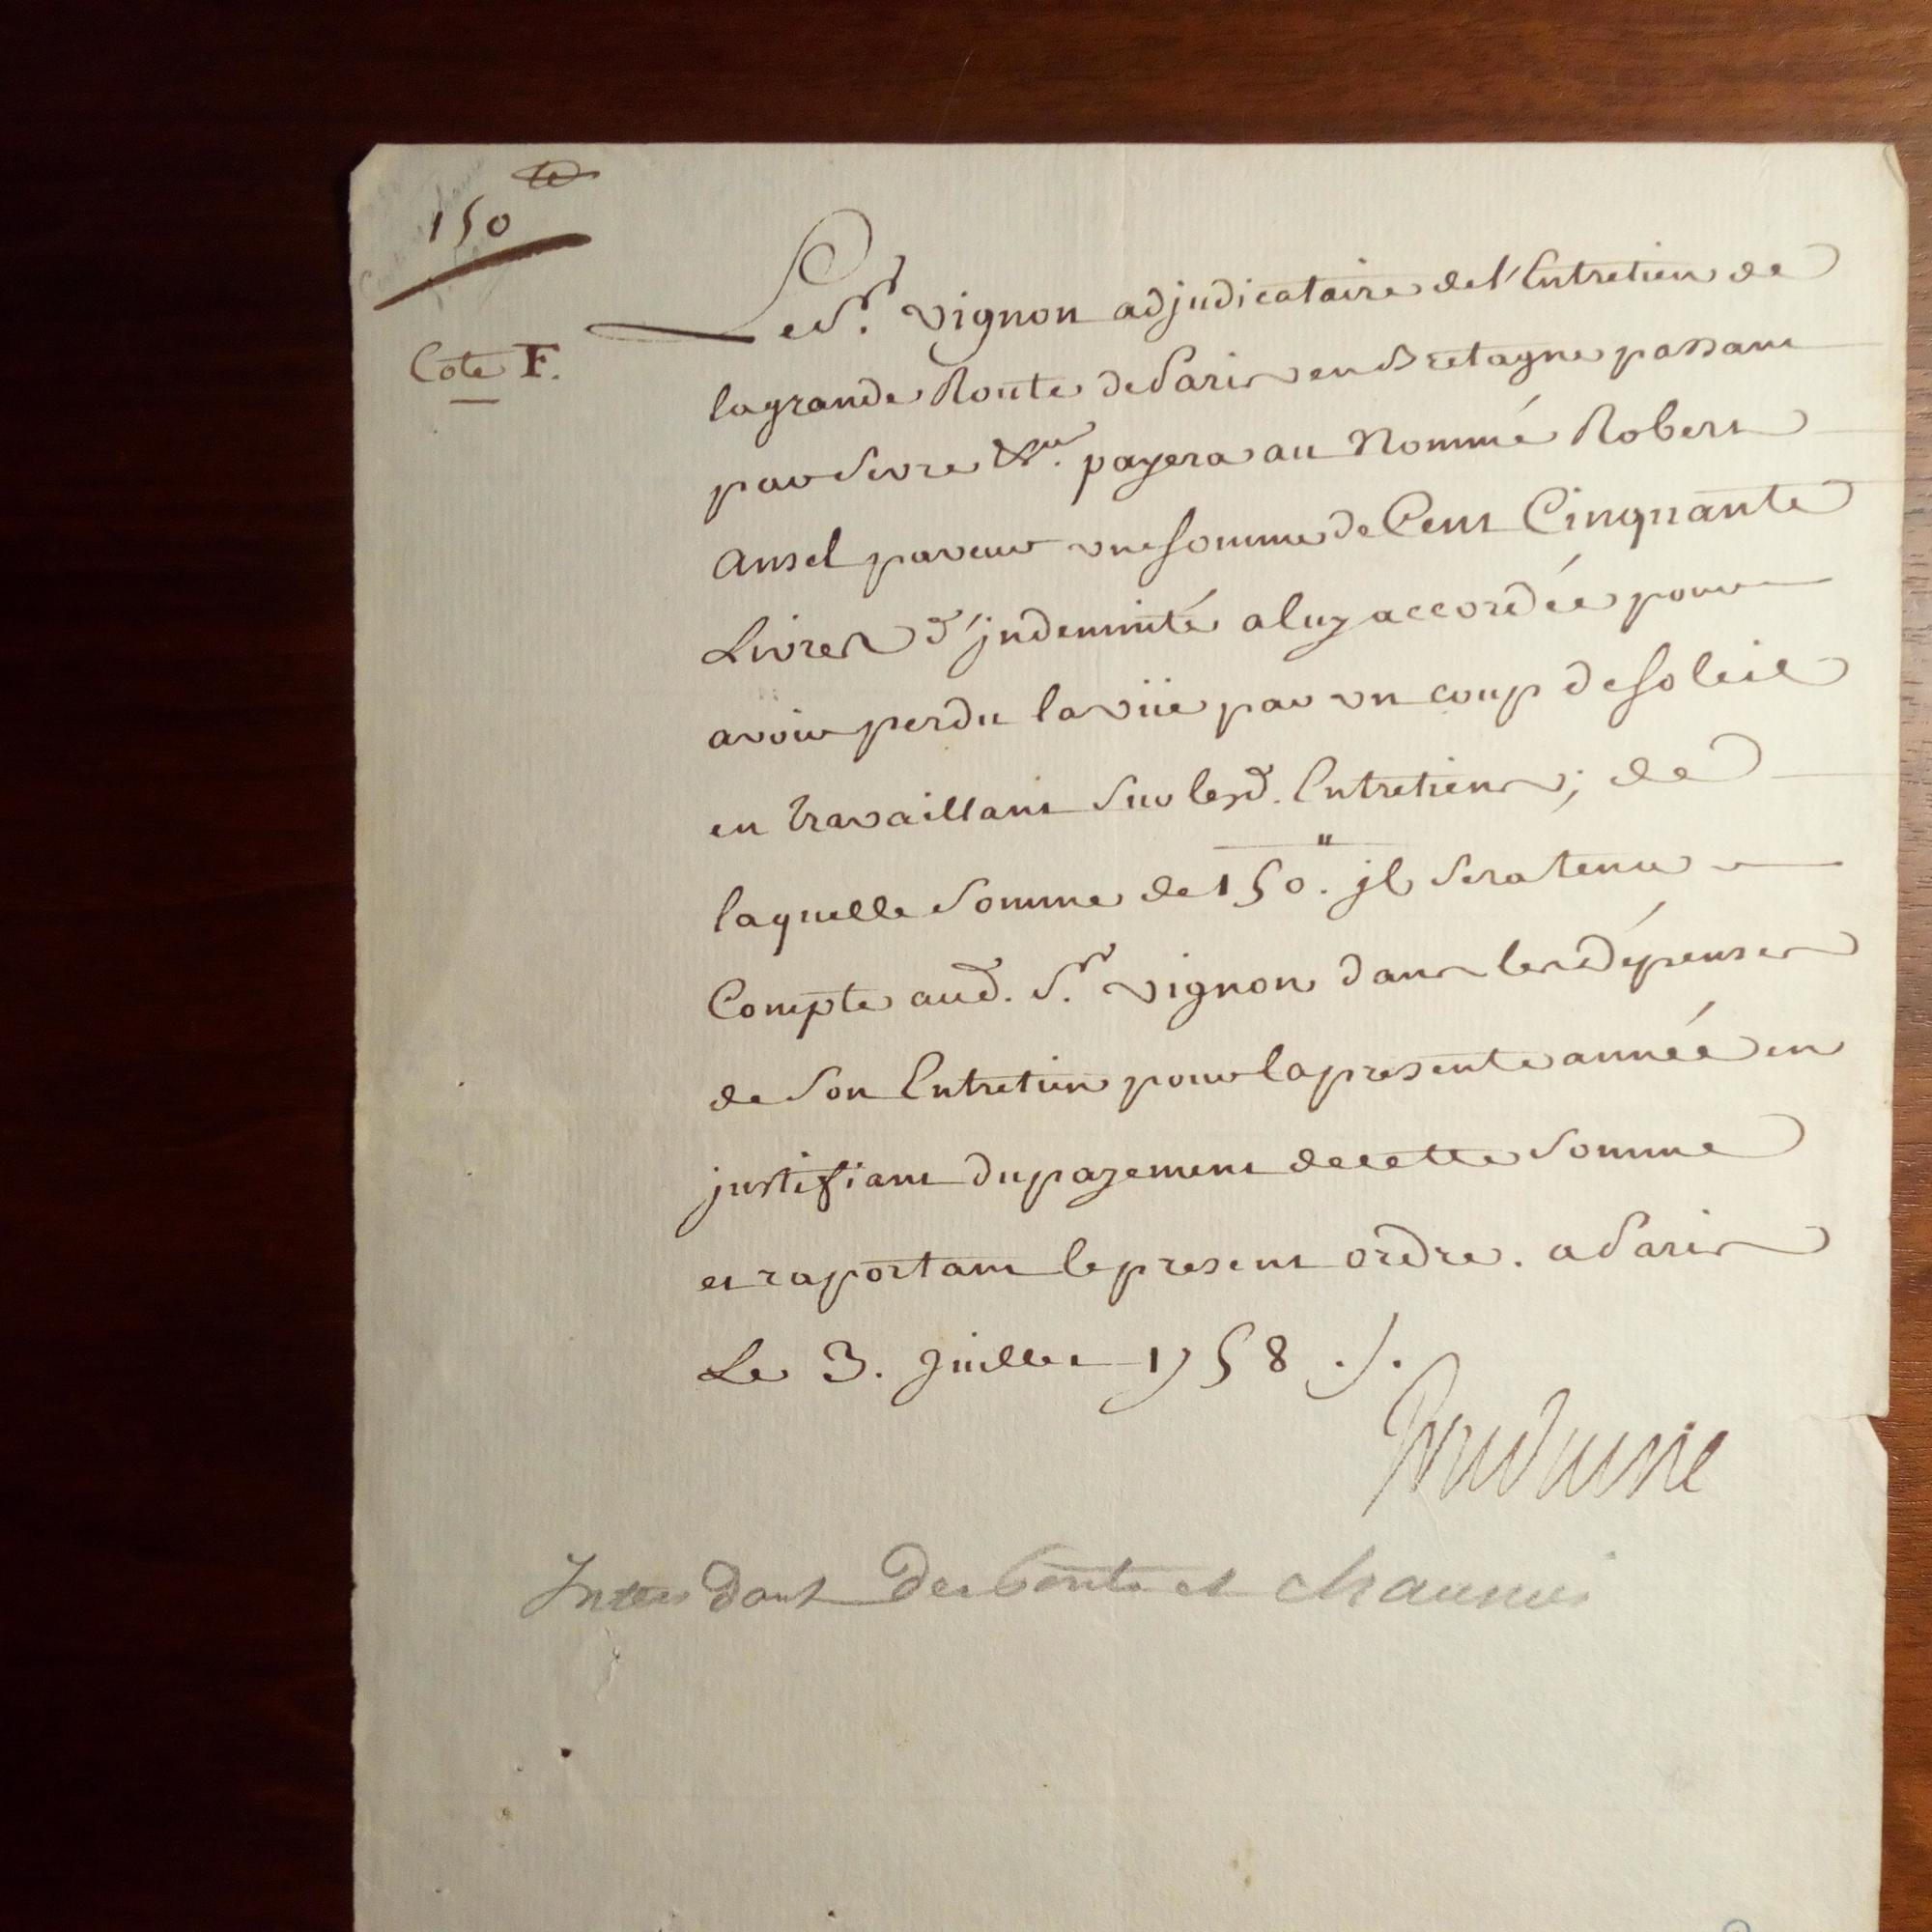 150 ₶
Cote F.
Le Sr. Vignon adjudicataire de l'Entretien de
la grande Route de Paris en Bretagne passant
par Sevre &ca. payera au Nommé Robert
Ansel paveur une somme de Cent Cinquante
Livres d'jndemnité a luy accordée pour
avoir perdu la vüe par un coup de soleil
en travaillant sur lesd. Entretiens; de
laquelle somme de 150". jl sera tenu
Compte aud. Sr. Vignon dans les dépenses
de son Entretien pour la presente année en
justifiant du payement de cette somme
et raportant le present ordre. a Paris
Le 3. Juillet 1758 ./.
Trudaine
Intendant des Ponts et chaussées